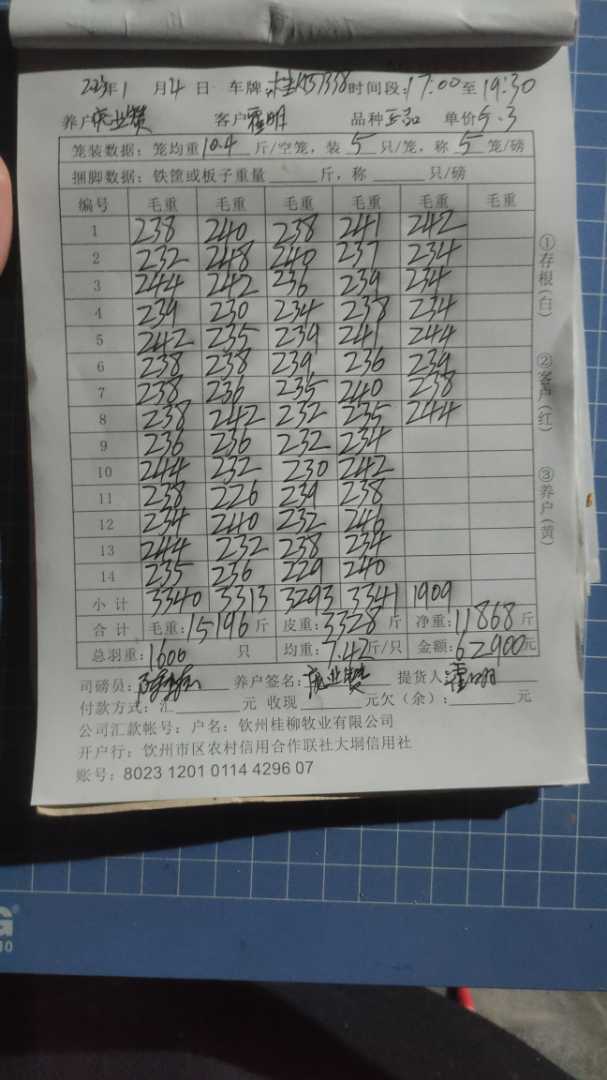 2023年1月4日 车牌:桂 时间段:17:00至19:30
养户 业赞 客户 明 品种 单价5.3
笼装数据:笼均重10.4斤/空笼,装5只/笼,称5笼/磅
捆脚数据:铁筐或板子重量 斤,称 只/磅
编号 毛重 毛重 毛重 毛重 毛重 毛重
1 238 240 238 241 242
2 232 248 240 237 234
3 244 242 236 239 234
4 239 230 234 238 234
5 242 235 239 241 244
6 238 238 239 236 239
7 238 236 235 240 238
8 238 242 232 235 244
9 236 236 232 234
10 244 232 230 242
11 238 226 239 238
12 234 240 232 246
13 244 232 238 234
14 235 236 229 240
小计 3340 3313 3293 3341 1909
合计 毛重:15196斤 皮重:3328斤 净重:11868斤
总羽重:1600只 均重:7.42斤/只 金额:62900元
司磅员: 养户签名: 业赞 提货人: 明
付款方式:汇 元 收现 元欠(余): 元
公司汇款帐号:户名:钦州桂柳牧业有限公司
开户行:钦州市区农村信用合作联社大垌信用社
账号:8023 1201 0114 4296 07
①存根(白) ②客户(红) ③养户(黄)
G